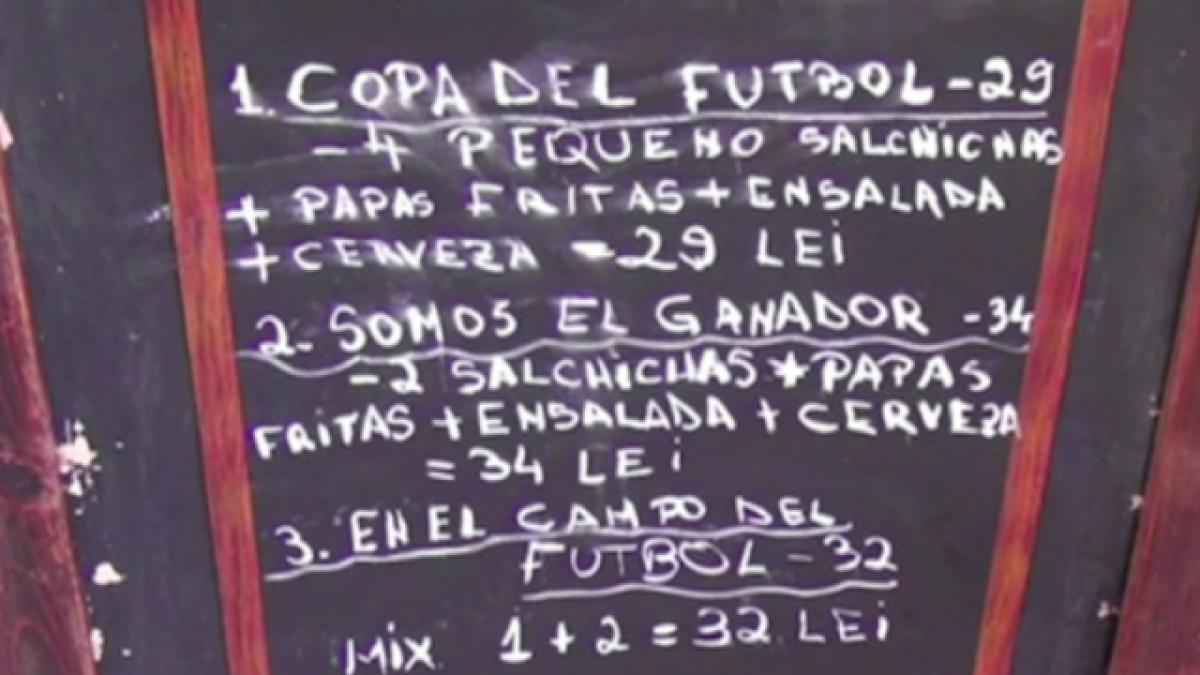 1. COPA DEL FUTBOL - 29
- 4 PEQUENO SALCHICHAS
+ PAPAS FRITAS + ENSALADA
+ CERVEZA = 29 LEI
2. SOMOS EL GANADOR - 34
- 2 SALCHICHAS + PAPAS
FRITAS + ENSALADA + CERVEZA
= 34 LEI
3. EN EL CAMPO DEL
FUTBOL - 32
MIX 1 + 2 = 32 LEI